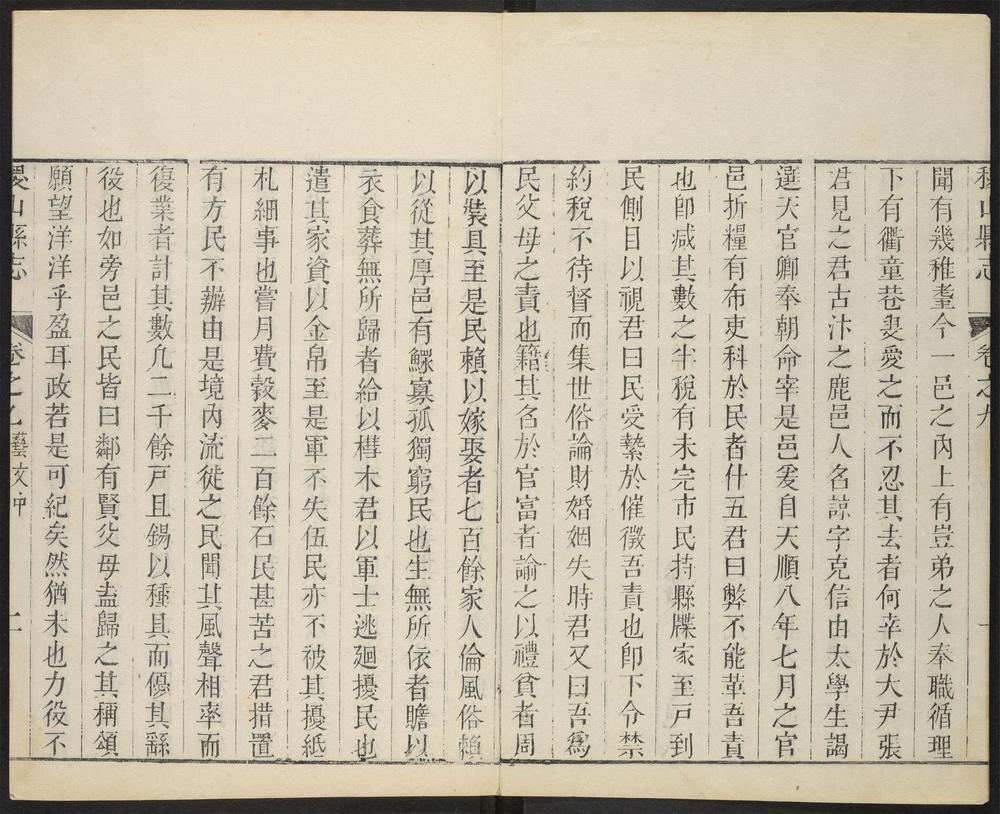 稷山縣志 卷之九
聞有幾稚耋今一邑之內上有豈弟之人奉職循理
下有衢童巷叟愛之而不忍其去者何幸於大尹張
君見之君古汴之鹿邑人名諒字克信由太學生謁
選天官卿奉朝命宰是邑爰自天順八年七月之官
邑折糧有布吏科於民者什五君曰弊不能革吾責
也卽減其數之半稅有未完市民持縣牒家至戸到
民側目以視君曰民受縶於催徵吾責也卽下令禁
約稅不待督而集世俗論財婚姻失時君又曰吾爲
民父母之責也籍其名於官富者諭之以禮貧者周
以裝具至是民賴以嫁娶者七百餘家人倫風俗賴
以從其厚邑有鰥寡孤獨窮民也生無所依者贍以
衣食葬無所歸者給以槥木君以軍士逃廻擾民也
遣其家資以金帛至是軍不失伍民亦不被其擾紙
札細事也嘗月費穀麥二百餘石民甚苦之君措置
有方民不辦由是境內流徙之民聞其風聲相率而
復業者計其數凢二千餘戸且錫以種具而優其繇
役也如旁邑之民皆曰鄰有賢父母盍歸之其稱頌
願望洋洋乎盈耳政若是可紀矣然猶未也力役不
稷山縣志 卷之九 藝文中 二